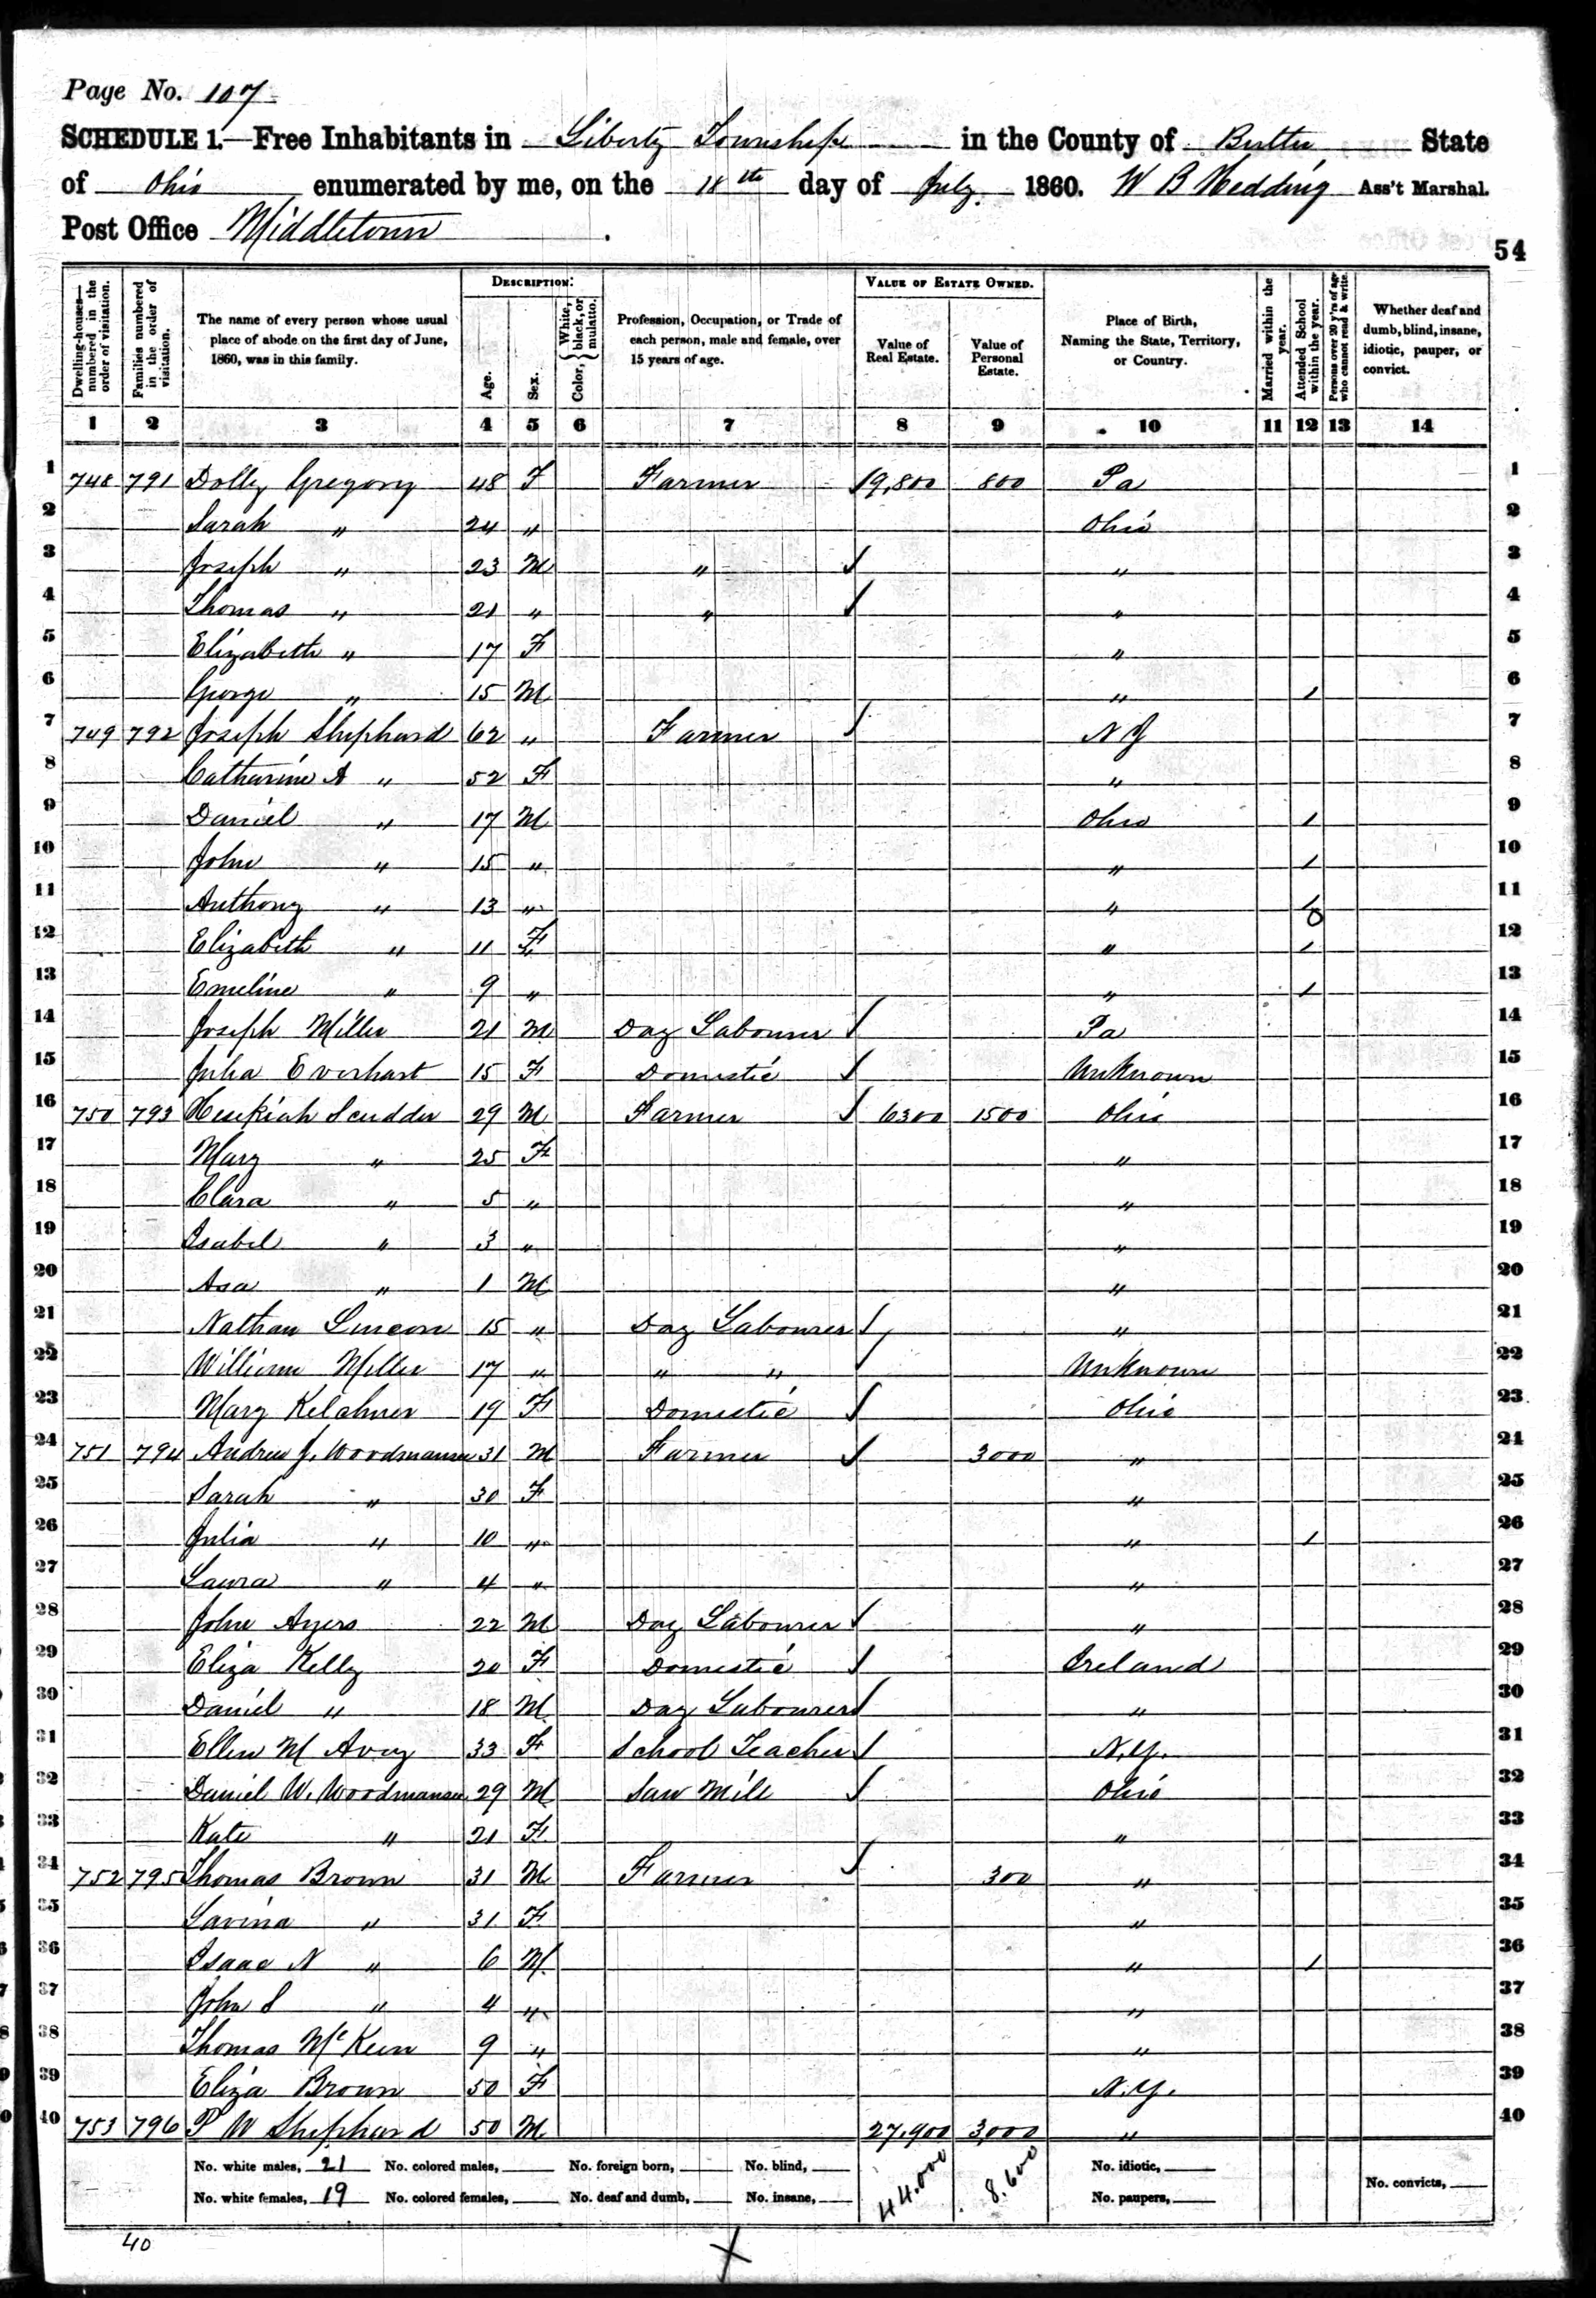 Page No. 107
SCHEDULE 1.—Free Inhabitants in Liberty Township in the County of Butler State
of Ohio enumerated by me, on the 18th day of July 1860. W B Hedding Ass't Marshal.
Post Office Middletown
54
Dwelling-houses—numbered in the order of visitation.
Families numbered in the order of visitation.
The name of every person whose usual place of abode on the first day of June, 1860, was in this family.
DESCRIPTION.
Age.
Sex.
Color, { White, black, or mulatto.
Profession, Occupation, or Trade of each person, male and female, over 15 years of age.
VALUE OF ESTATE OWNED.
Value of Real Estate.
Value of Personal Estate.
Place of Birth, Naming the State, Territory, or Country.
Married within the year.
Attended School within the year.
Persons over 20 y'rs of age who cannot read & write.
Whether deaf and dumb, blind, insane, idiotic, pauper, or convict.
1 2 3 4 5 6 7 8 9 10 11 12 13 14
1 748 791 Dolly Gregory 48 F Farmer 19,800 800 Pa 1
2 Sarah " 24 " Ohio 2
3 Joseph " 23 M " / " 3
4 Thomas " 21 " " / " 4
5 Elizabeth " 17 F " 5
6 George " 15 M " / 6
7 749 792 Joseph Shephard 62 " Farmer / N J 7
8 Catharine A " 52 F " 8
9 Daniel " 17 M Ohio / 9
10 John " 15 " " / 10
11 Anthony " 13 " " / 8 11
12 Elizabeth " 11 F " / 12
13 Emeline " 9 " " / 13
14 Joseph Miller 21 M Day Labourer / Pa 14
15 Julia Everhart 15 F Domestic / Unknown 15
16 750 793 Hesekiah Scudder 29 M Farmer / 6300 1500 Ohio 16
17 Mary " 25 F " 17
18 Clara " 5 " " 18
19 Isabel " 3 " " 19
20 Asa " 1 M " 20
21 Nathan 15 " Day Labourer / " 21
22 William Miller 17 " " " / Unknown 22
23 Mary 19 F Domestic / Ohio 23
24 751 794 Andrew J. Woodmansee 31 M Farmer / 3000 " 24
25 Sarah " 30 F " 25
26 Julia " 10 " " / 26
27 Laura " 4 " " 27
28 John Ayers 22 M Day Labourer / " 28
29 Eliza Kelly 20 F Domestic / Ireland 29
30 Daniel " 18 M Day Labourer / " 30
31 Ellen M Avey 33 F School Teacher / N.Y. 31
32 Daniel W. Woodmansee 29 M Saw Mill / Ohio 32
33 Kate " 21 F " 33
34 752 795 Thomas Brown 31 M Farmer / 300 " 34
35 Lavina " 31 F " 35
36 Isaac N " 6 M " / 36
37 John S " 4 " " 37
38 Thomas McKeen 9 " " 38
39 Eliza Brown 50 F N.Y. 39
40 753 796 P W Shephard 50 M 27,900 3,000 " 40
No. white males, 21 No. colored males, No. foreign born, No. blind, 44,000 8,600 No. idiotic,
No. white females, 19 No. colored females, No. deaf and dumb, No. insane, No. paupers, No. convicts,
40
X